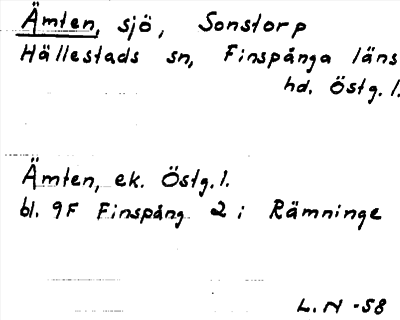 Ämten, sjö, Sonstorp
Hällestads sn, Finspånga läns
hd. Östg.l.
Ämten, ek. Östg.l.
bl. 9F Finspång 2 i Rämninge
L.N -58